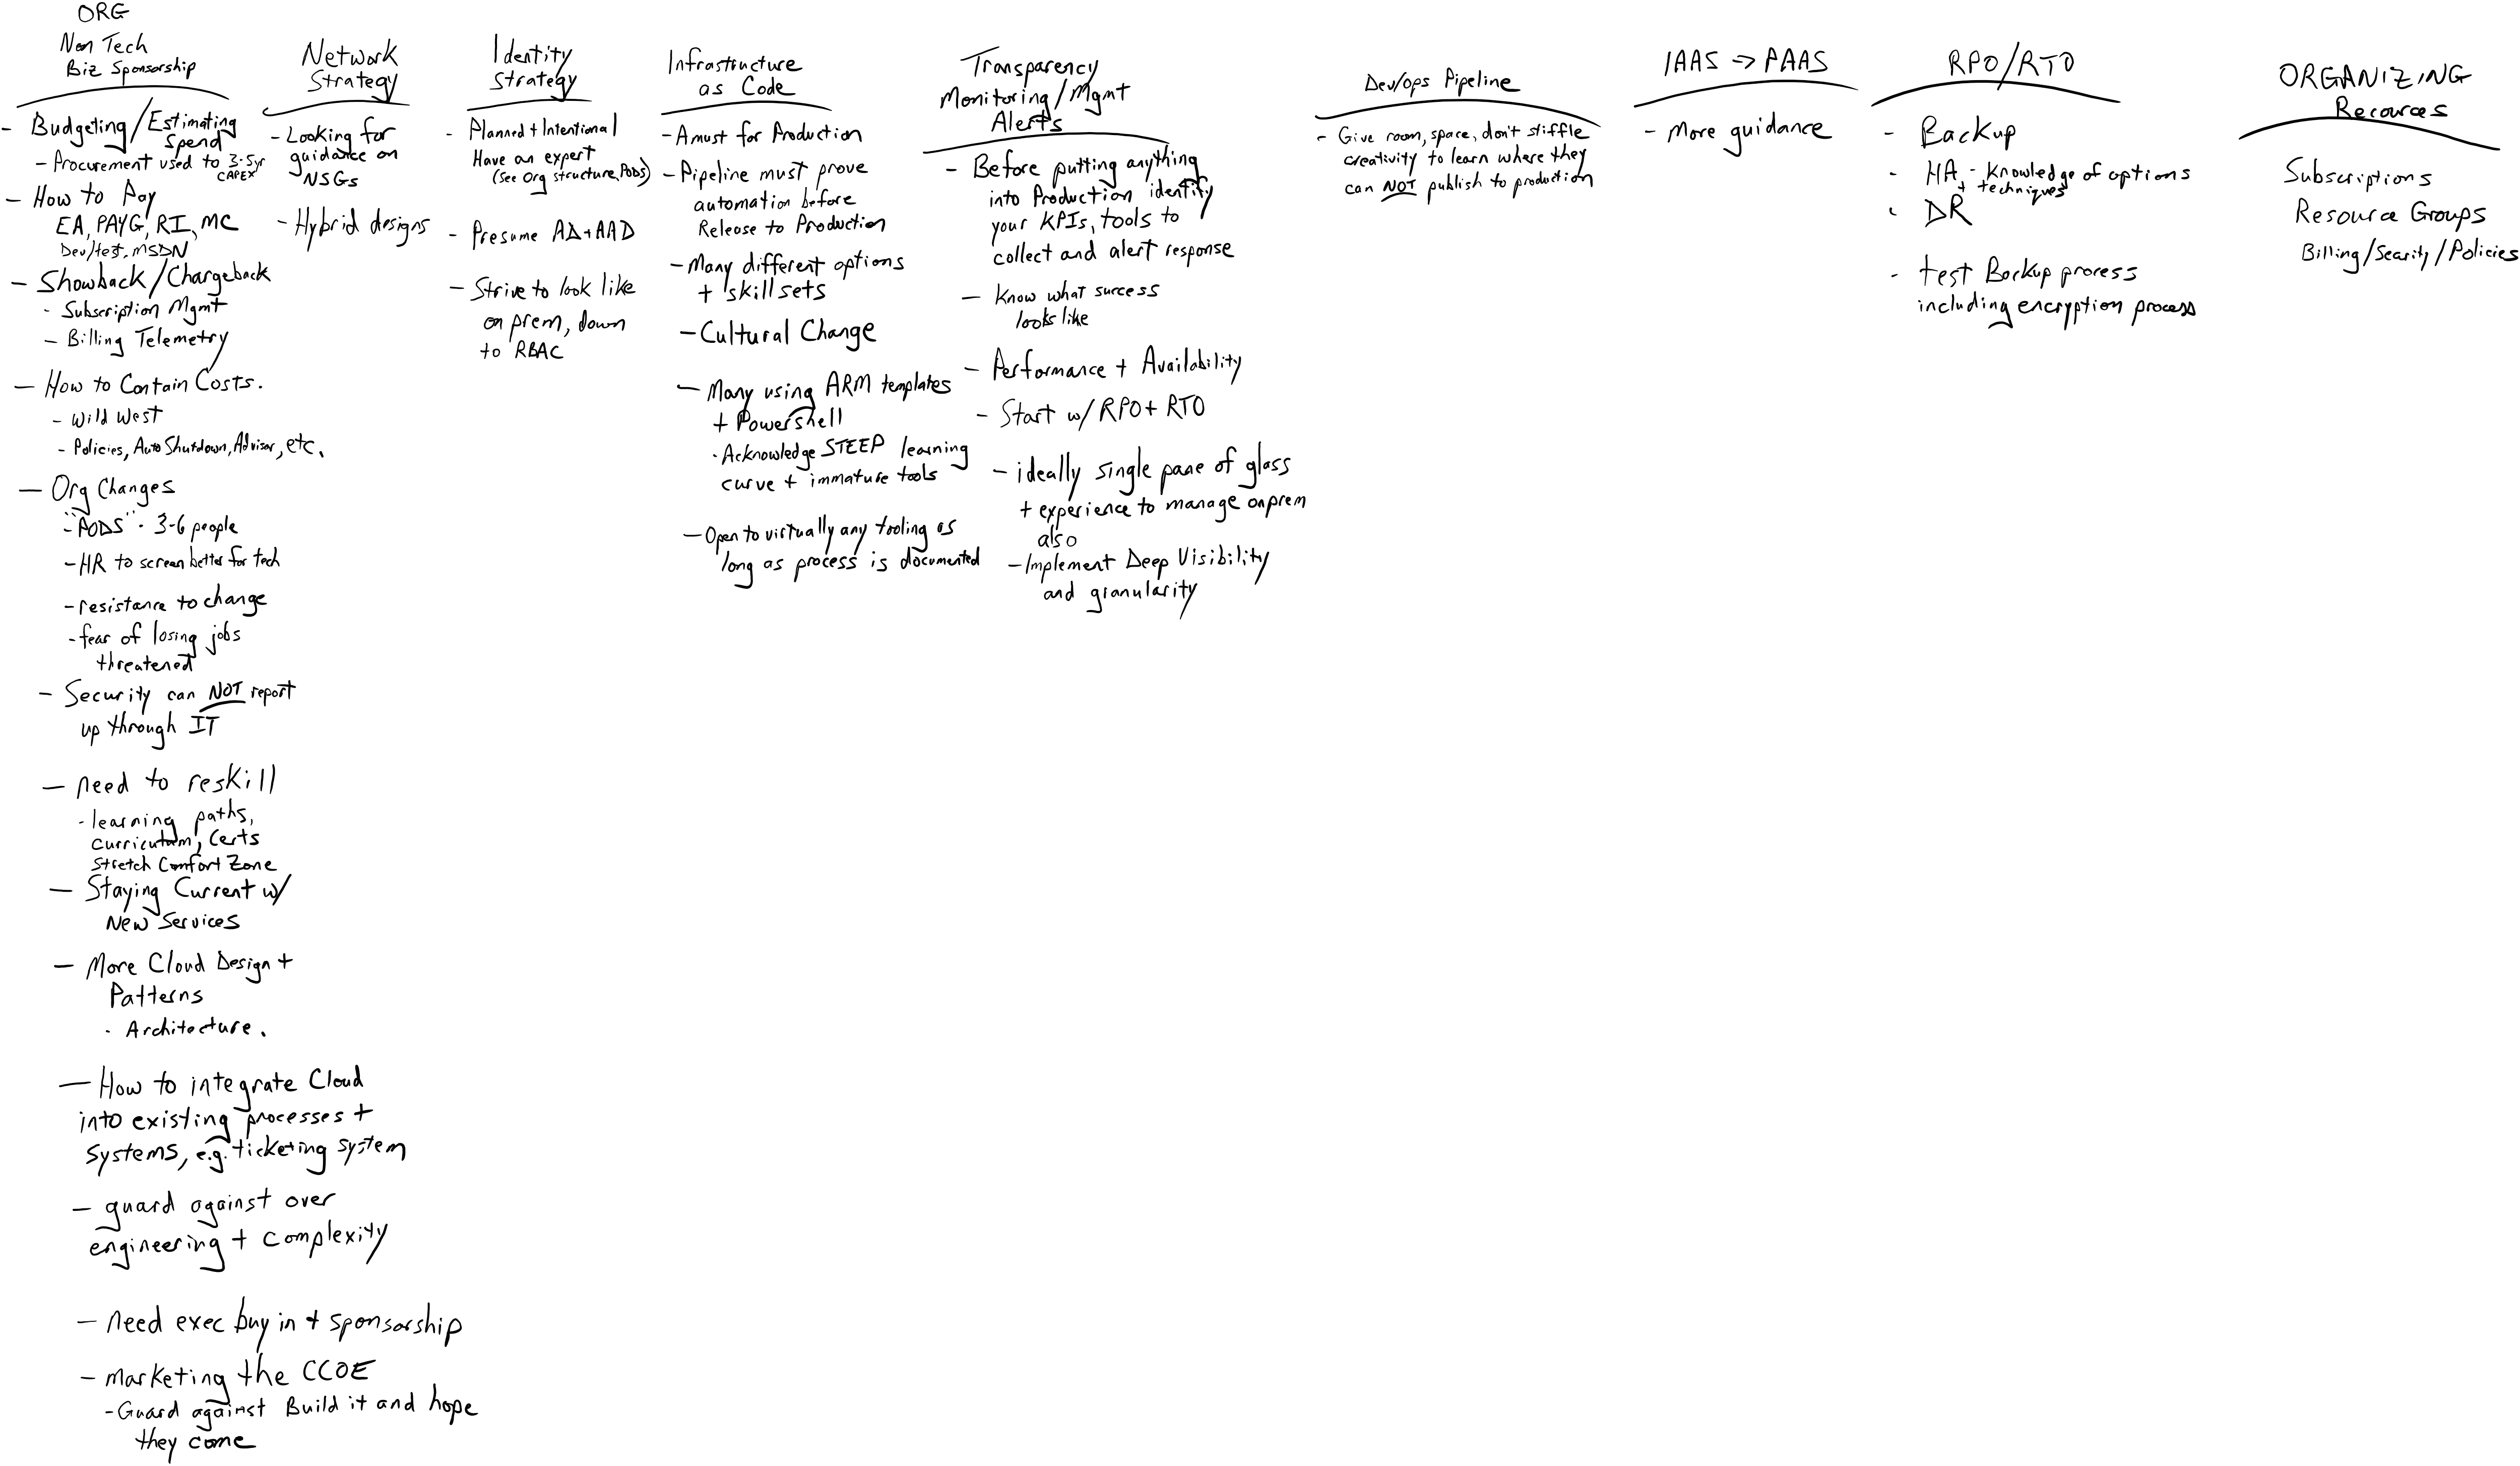 ORG
Non Tech
Biz Sponsorship
- Budgeting/Estimating
Spend
- Procurement used to 3-5yr
CAPEX
- How to Pay
EA, PAYG, RI, MC
Dev/test, MSDN
- Showback/Chargeback
- Subscription Mgmt
- Billing Telemetry
- How to Contain Costs.
- Wild West
- Policies, Auto Shutdown, Advisor, etc.
- Org Changes
- "PODS" - 3-6 people
- HR to screen better for tech
- resistance to change
- fear of losing jobs
threatened
- Security can NOT report
up through IT
- need to reskill
- learning paths,
curriculum, Certs
Stretch Comfort Zone
- Staying Current w/
New Services
- More Cloud Design +
Patterns
- Architecture.
- How to integrate Cloud
into existing processes +
systems, e.g. ticketing system
- guard against over
engineering + complexity
- need exec buy in + sponsorship
- marketing the CCOE
- Guard against Build it and hope
they come
Network
Strategy
- Looking for
guidance on
NSGs
- Hybrid designs
Identity
Strategy
- Planned + Intentional
Have an expert
(see Org structure, Pods)
- Presume AD+AAD
- Strive to look like
on prem, down
to RBAC
Infrastructure
as Code
- A must for Production
- Pipeline must prove
automation before
Release to Production
- Many different options
+ skillsets
- Cultural Change
- Many using ARM templates
+ Powershell
- Acknowledge STEEP learning
curve + immature tools
- Open to virtually any tooling as
long as process is documented
Transparency
Monitoring/Mgmt
Alerts
- Before putting anything
into Production identify
your KPIs, tools to
collect and alert response
- Know what success
looks like
- Performance + Availability
- Start w/ RPO + RTO
- ideally single pane of glass
+ experience to manage onprem
also
- Implement Deep Visibility
and granularity
Dev/ops Pipeline
- Give room, space, don't stiffle
creativity to learn where they
can NOT publish to production
IAAS => PAAS
- More guidance
RPO/RTO
- Backup
- HA - Knowledge of options
+ techniques
- DR
- test Backup process
including encryption process
ORGANIZING
Recources
Subscriptions
Resource Groups
Billing/Security/Policies